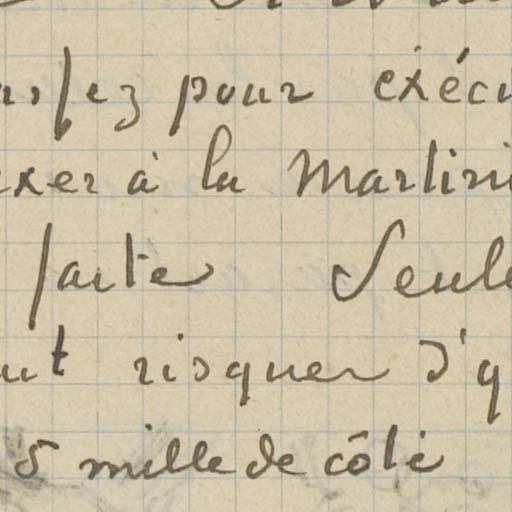 pour exécu
exer à la Martini
faite Seule
ut risquer d'y
5 mille de côté